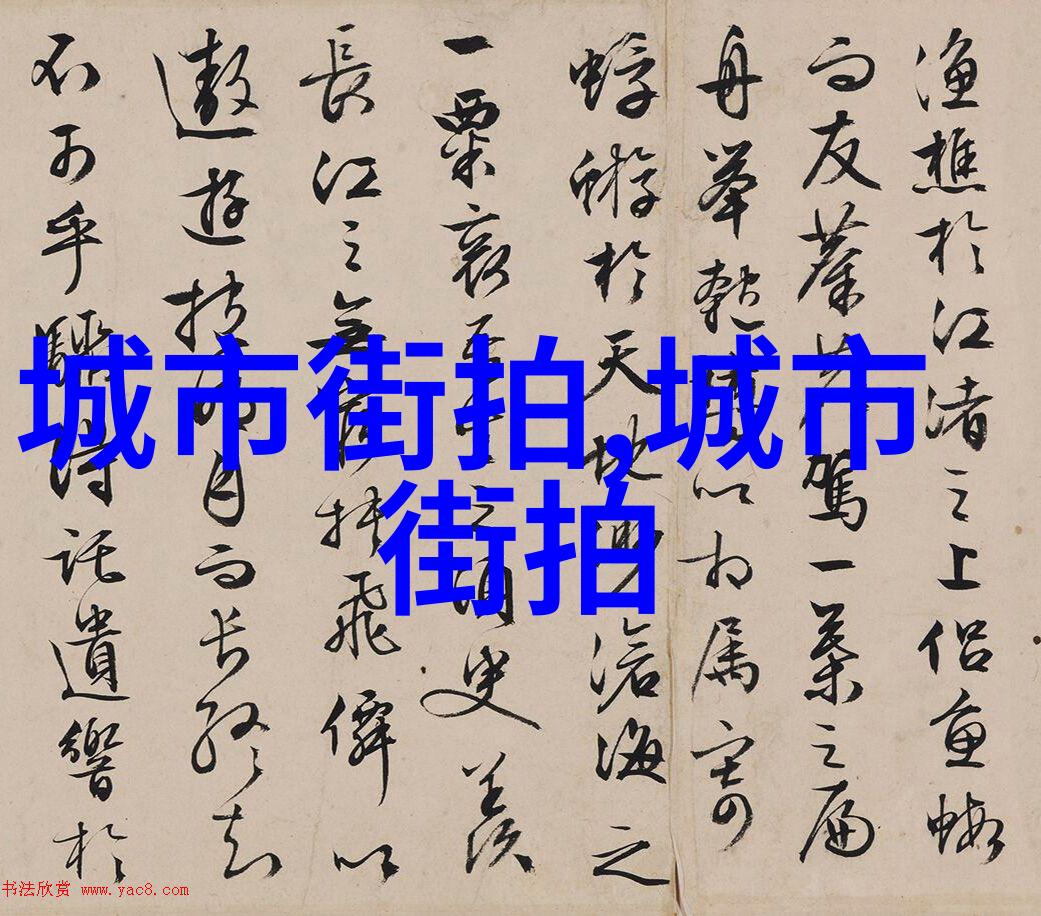 漁樵於江渚之上侣魚蝦
而友麋駕一葉之扁
舟举匏以相属寄
蜉蝣於天地滄海之
一粟哀之須臾羨
長江之無挟飛僊以
遨遊抱月而长终知
不可乎驟得託遺響於
城市街拍,城市
街拍
书法欣赏 www.yac8.com